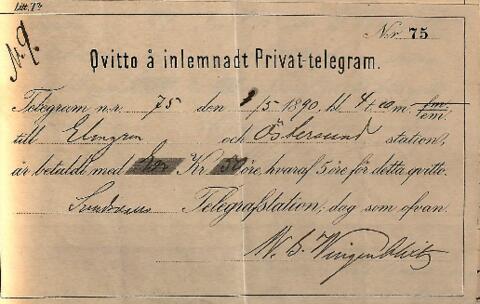 Litt. T
Nr 75
N. 9.
Qvitto å inlemnadt Privat-telegram.
Telegram n:r 75 den 9/5 1890, kl 4 t. 20 m. fm. em.
till Elmgren och Östersund station,
är betaldt med En Kr. 50 öre, hvaraf 5 öre för detta qvitto.
Sundsvall Telegrafstation; dag som ofvan.